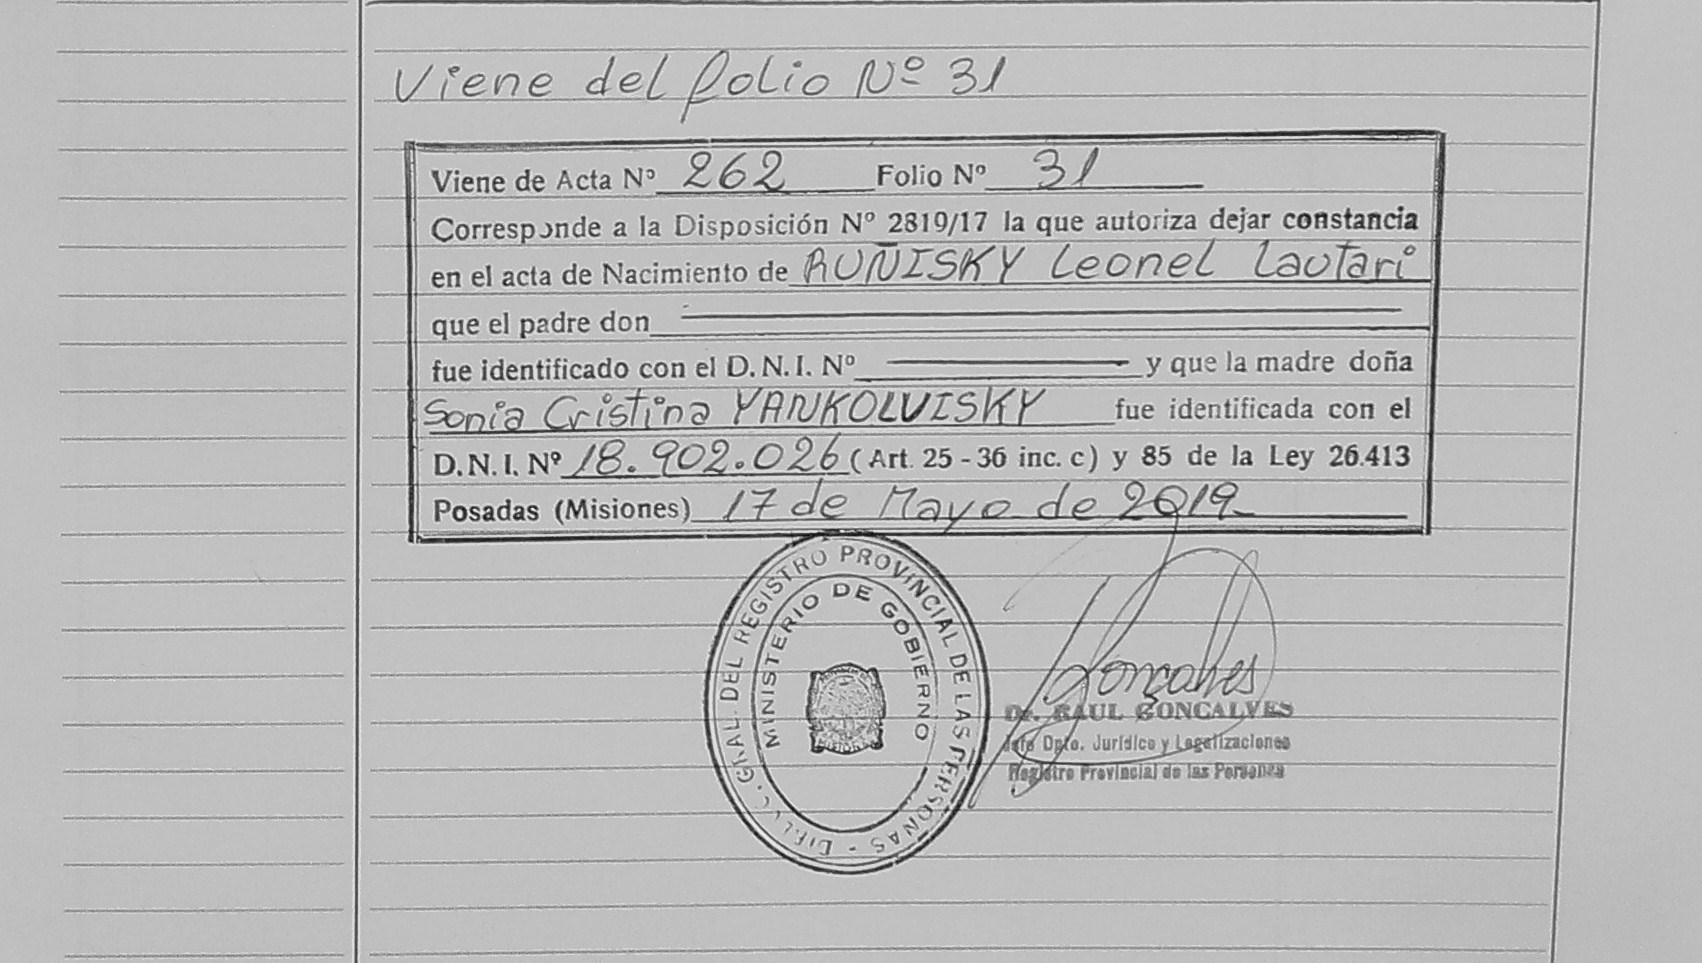 Viene del folio Nº 31
Viene de Acta Nº 262 Folio Nº 31
Corresponde a la Disposición Nº 2819/17 la que autoriza dejar constancia
en el acta de Nacimiento de RUÑISKY Leonel Lautari
que el padre don
fue identificado con el D.N.I. Nº y que la madre doña
Sonia Cristina YANKOLVISKY fue identificada con el
D.N.I. Nº 18.902.026 (Art. 25 - 36 inc. c) y 85 de la Ley 26.413
Posadas (Misiones) 17 de Mayo de 2019
GRAL. DEL REGISTRO PROVINCIAL DE LAS PERSONAS
MINISTERIO DE GOBIERNO
Gonçalves
Dr. RAUL GONCALVES
Jefe Dpto. Jurídico y Legalizaciones
Registro Provincial de las Personas